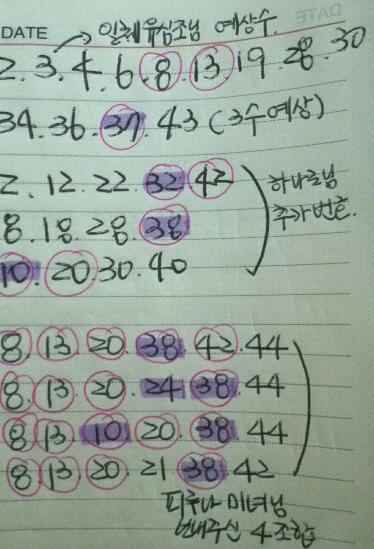 DATE
일헤유심조님 예상수.
2. 3. 4. 6. 8. 13. 19. 28. 30
34. 36. 37. 43 (3수예상)
2. 12. 22. 32. 42
하나로님
8. 18. 28. 38
추가번호.
10. 20. 30. 40
8. 13. 20. 38. 42. 44
8. 13. 20. 24. 38. 44
8. 13. 10. 20. 38. 44
8. 13. 20. 21. 38. 42
피루나미녀님
보내주신 4조합